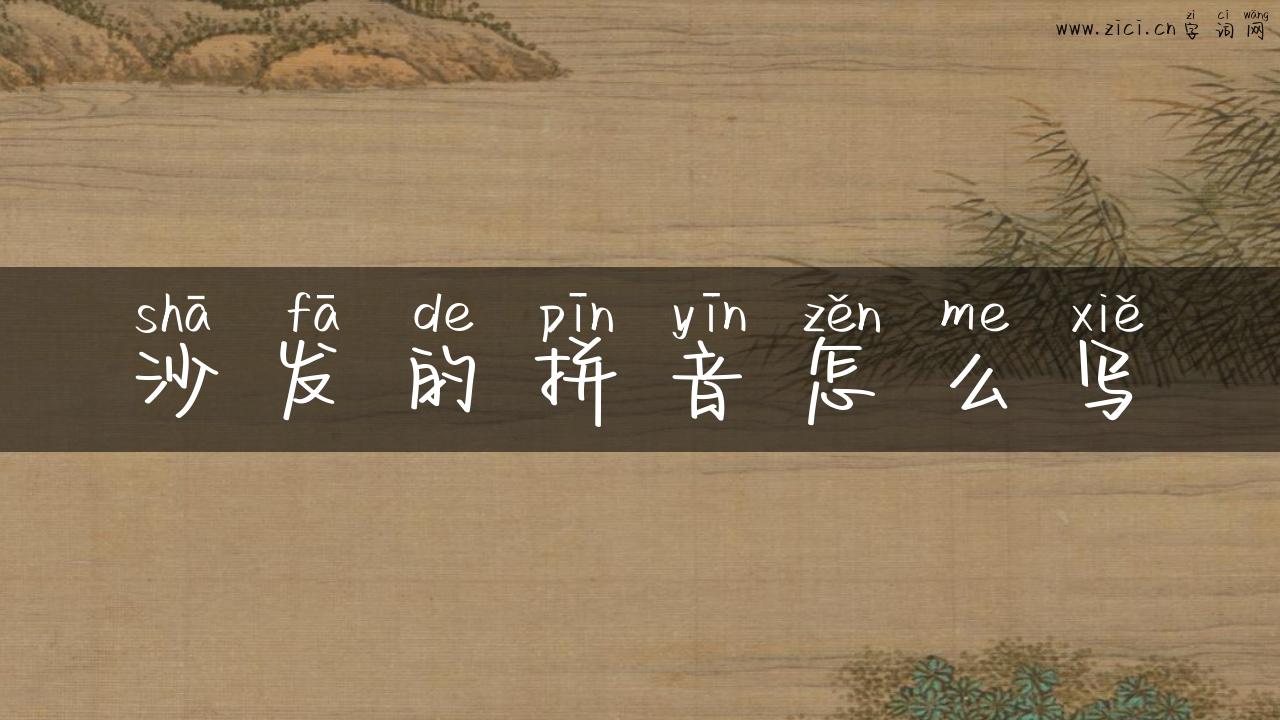 zì cí wǎng
www.zici.cn 字词网
shā fā de pīn yīn zěn me xiě
沙发的拼音怎么写